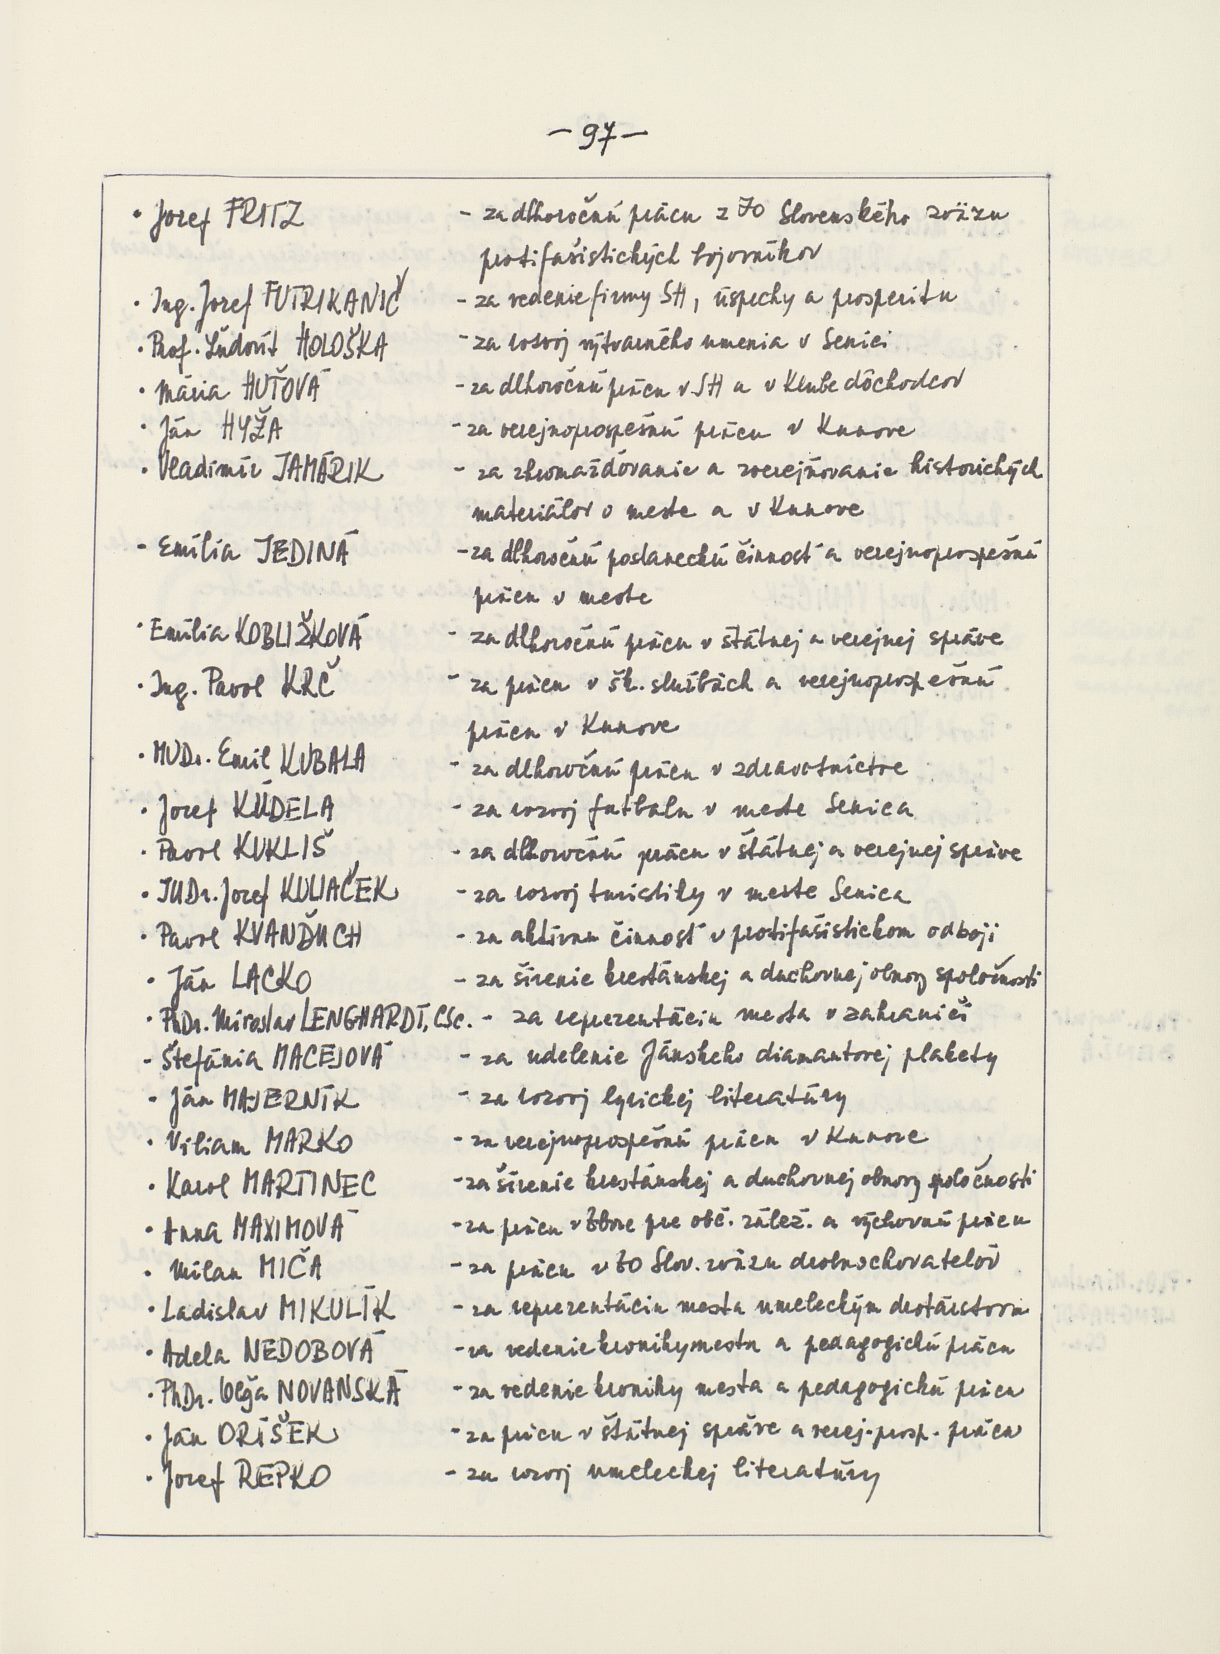 - 97 -
• Jozef FRITZ - za dlhoročnú prácu z ZO Slovenského zväzu
protifašistických bojovníkov
• Ing. Jozef FUTRIKANIČ - za vedenie firmy SH, úspechy a prosperitu
• Prof. Ľudovít HOLOŠKA - za rozvoj výtvarného umenia v Senici
• Mária HUŤOVÁ - za dlhoročnú prácu v SH a v Klube dôchodcov
• Ján HYŽA - za verejnoprospešnú prácu v Kunove
• Vladimír JAMÁRIK - za zhromažďovanie a zverejňovanie historických
materiálov o meste a v Kunove
- Emília JEDINÁ - za dlhoročnú poslaneckú činnosť a verejnoprospešnú
prácu v meste
• Emília KOBLIŽKOVÁ - za dlhoročnú prácu v štátnej a verejnej správe
• Ing. Pavol KRČ - za prácu v šk. službách a verejnoprospešnú
prácu v Kunove
• MUDr. Emil KUBALA - za dlhoročnú prácu v zdravotníctve
• Jozef KÚDELA - za rozvoj futbalu v meste Senica
• Pavol KUKLIŠ - za dlhoročnú prácu v štátnej a verejnej správe
• JUDr. Jozef KULIAČEK - za rozvoj turistiky v meste Senica
• Pavol KVANĎUCH - za aktívnu činnosť v protifašistickom odboji
• Ján LACKO - za šírenie kresťánskej a duchovnej obnovy spoločnosti
• PhDr. Miroslav LENGHARDT, CSc. - za reprezentáciu mesta v zahraničí
- Štefánia MACEJOVÁ - za udelenie Jánskeho diamantovej plakety
- Ján MAJERNÍK - za rozvoj lyrickej literatúry
• Viliam MARKO - za verejnoprospešnú prácu v Kunove
• Karol MARTINEC - za šírenie kresťánskej a duchovnej obnovy spoločnosti
• Anna MAXIMOVÁ - za prácu v Zbore pre obč. zálež. a výchovnú prácu
• Milan MIČA - za prácu v ZO Slov. zväzu drobnochovateľov
• Ladislav MIKULÍK - za reprezentáciu mesta umeleckým drotárstvom
• Adela NEDOBOVÁ - za vedenie kroniky mesta a pedagogickú prácu
• PhDr. Oľga NOVANSKÁ - za vedenie kroniky mesta a pedagogickú prácu
• Ján ORIŠEK - za prácu v štátnej správe a verej. prosp. prácu
• Jozef REPKO - za rozvoj umeleckej literatúry